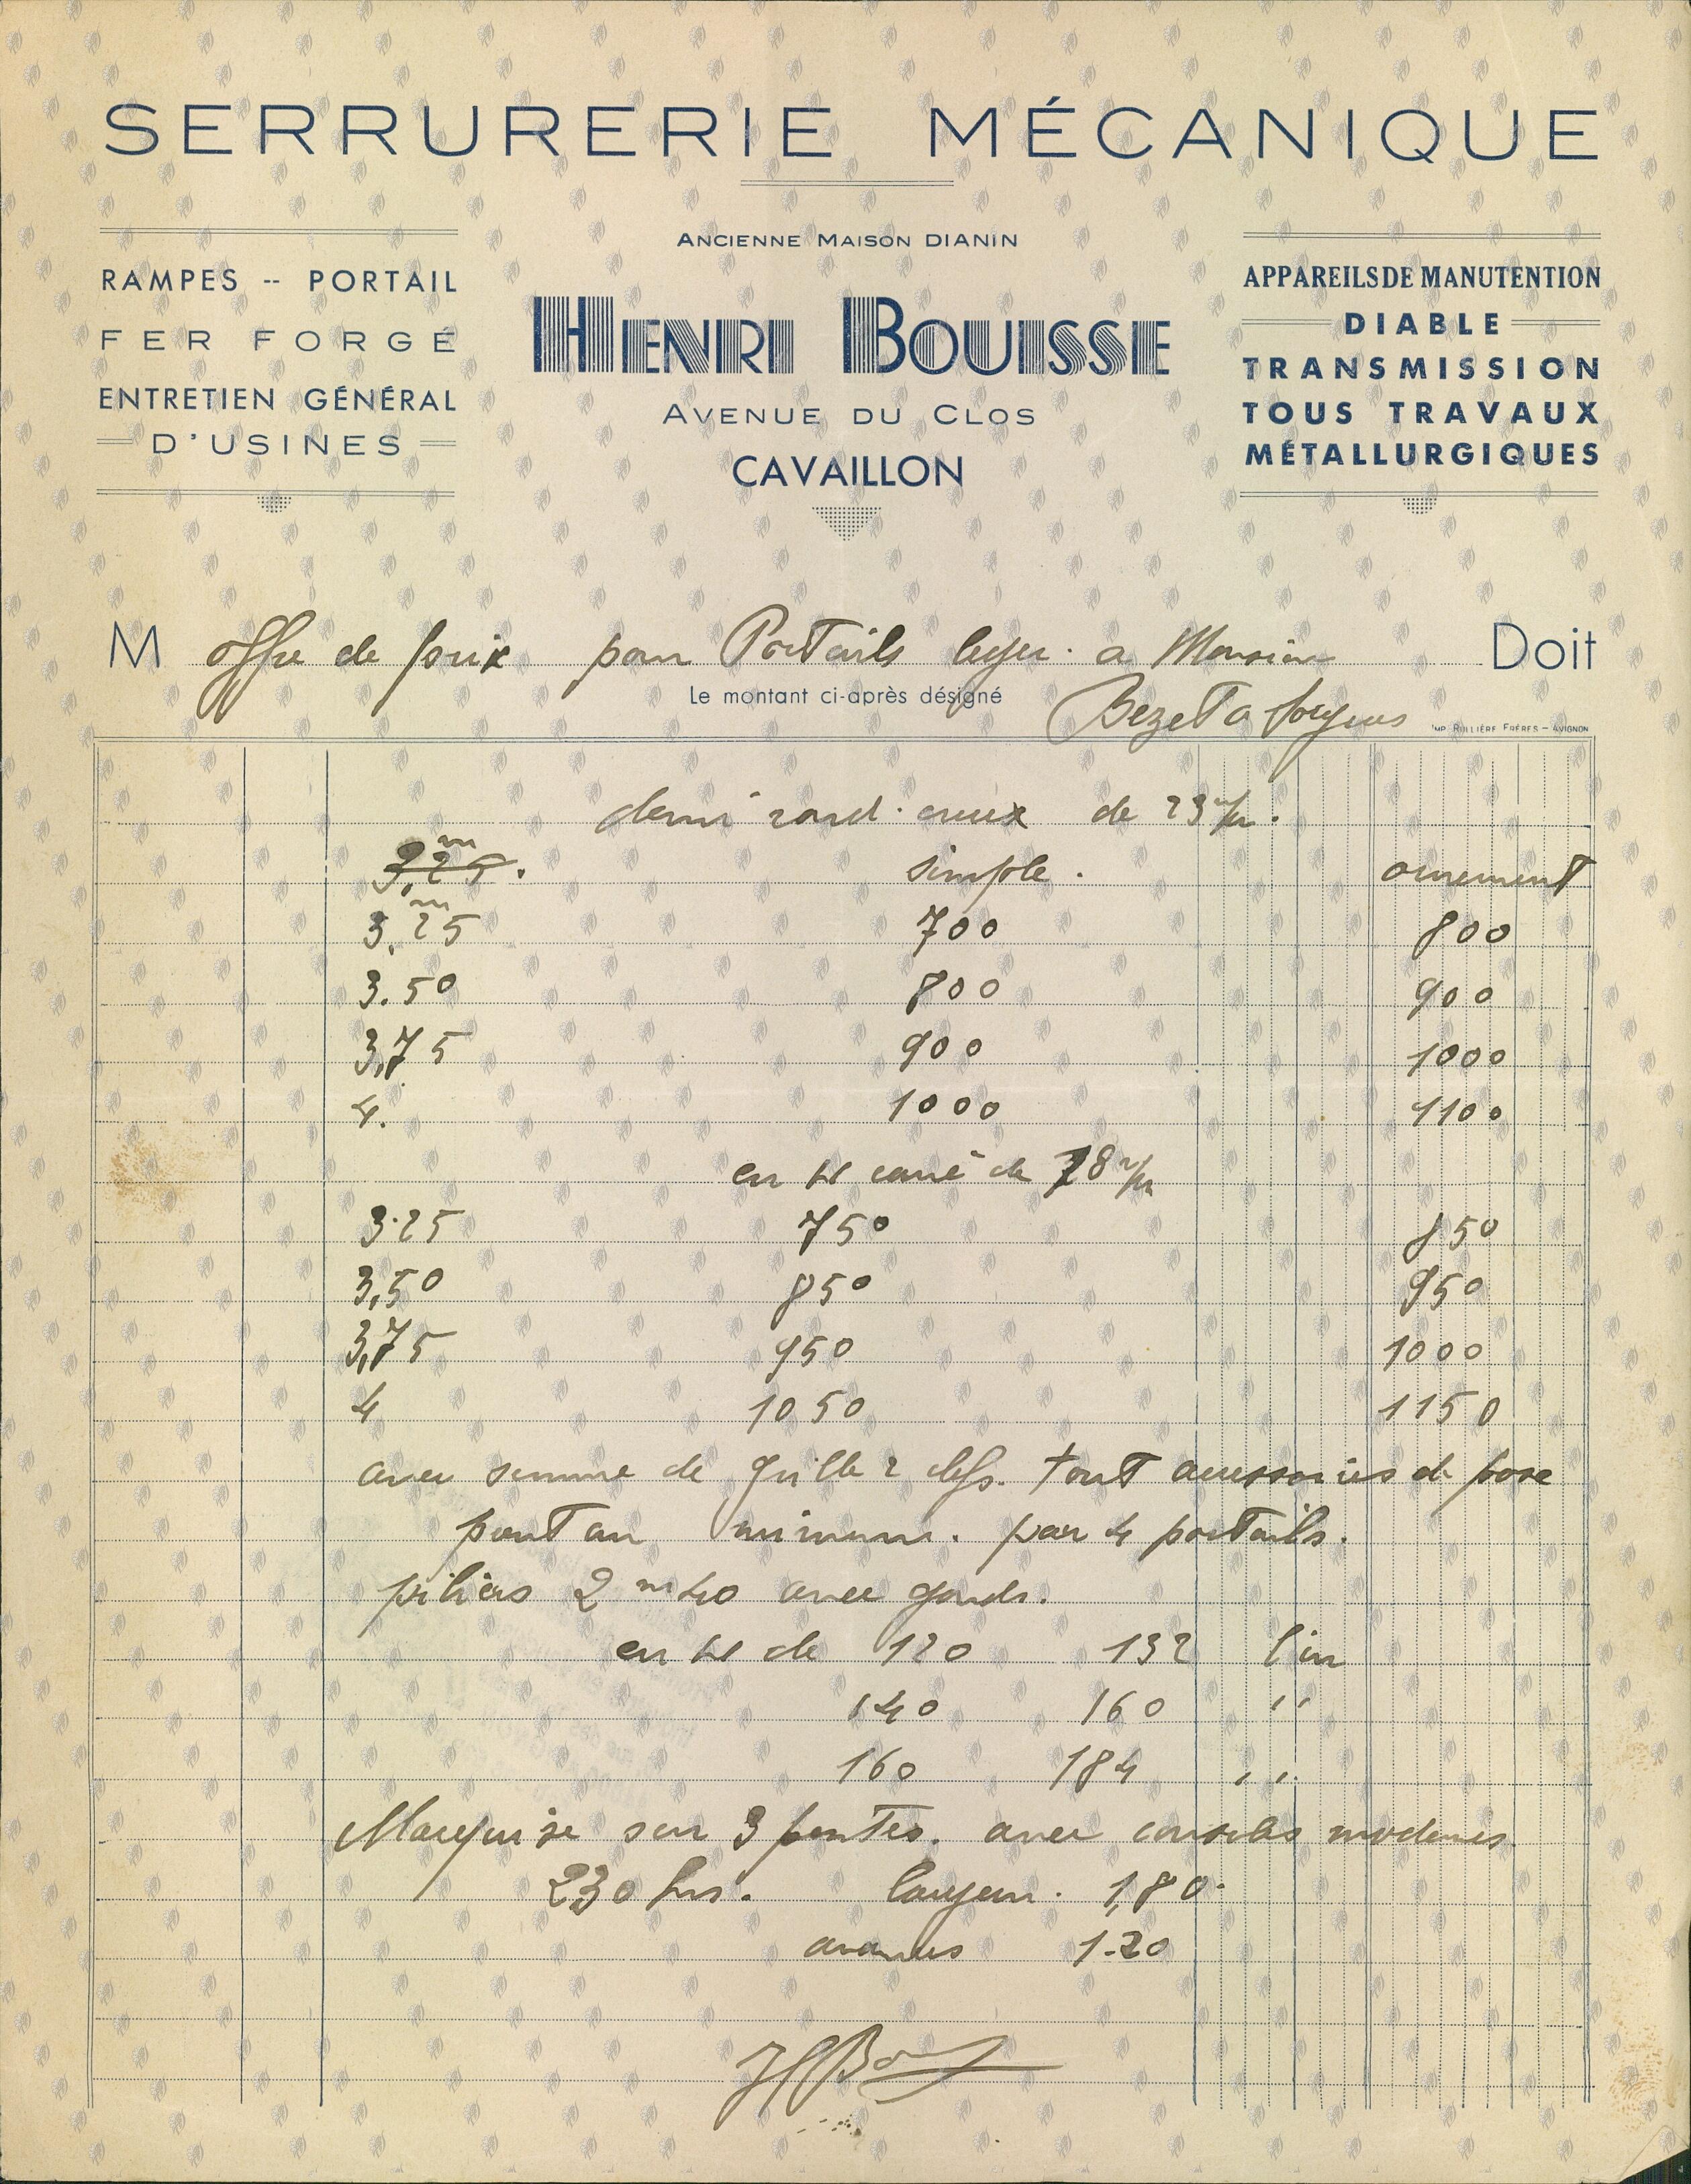 SERRURERIE MÉCANIQUE
ANCIENNE MAISON DIANIN
RAMPES -- PORTAIL
FER FORGÉ
ENTRETIEN GÉNÉRAL
D'USINES
HENRI BOUISSE
AVENUE DU CLOS
CAVAILLON
APPAREILS DE MANUTENTION
DIABLE
TRANSMISSION
TOUS TRAVAUX
MÉTALLURGIQUES
M offre de prix pour Portails leger. a Monsieur Doit
Le montant ci-après désigné
Bezet a
IMP. RULLIÈRE FRÈRES - AVIGNON
demi rond. creux de 23 m/m.
3,25.
simple. ornement
3,m25 700 800
3.50 800 900
3,75 900 1000
4. 1000 1100
en carré de 18 m/m
3.25 750 850
3,50 850 950
3,75 950 1000
4 1050 1150
avec de grille 2 clefs. tout accessoires de pose
par 4 portails.
piliers 2 m 40 avec gonds.
en de 120 132 l'un
140 160 ''
160 184 ''
Marquise sur 3 pentes. avec consoles modernes
230 frs. largeur. 1,80.
avances 1.20